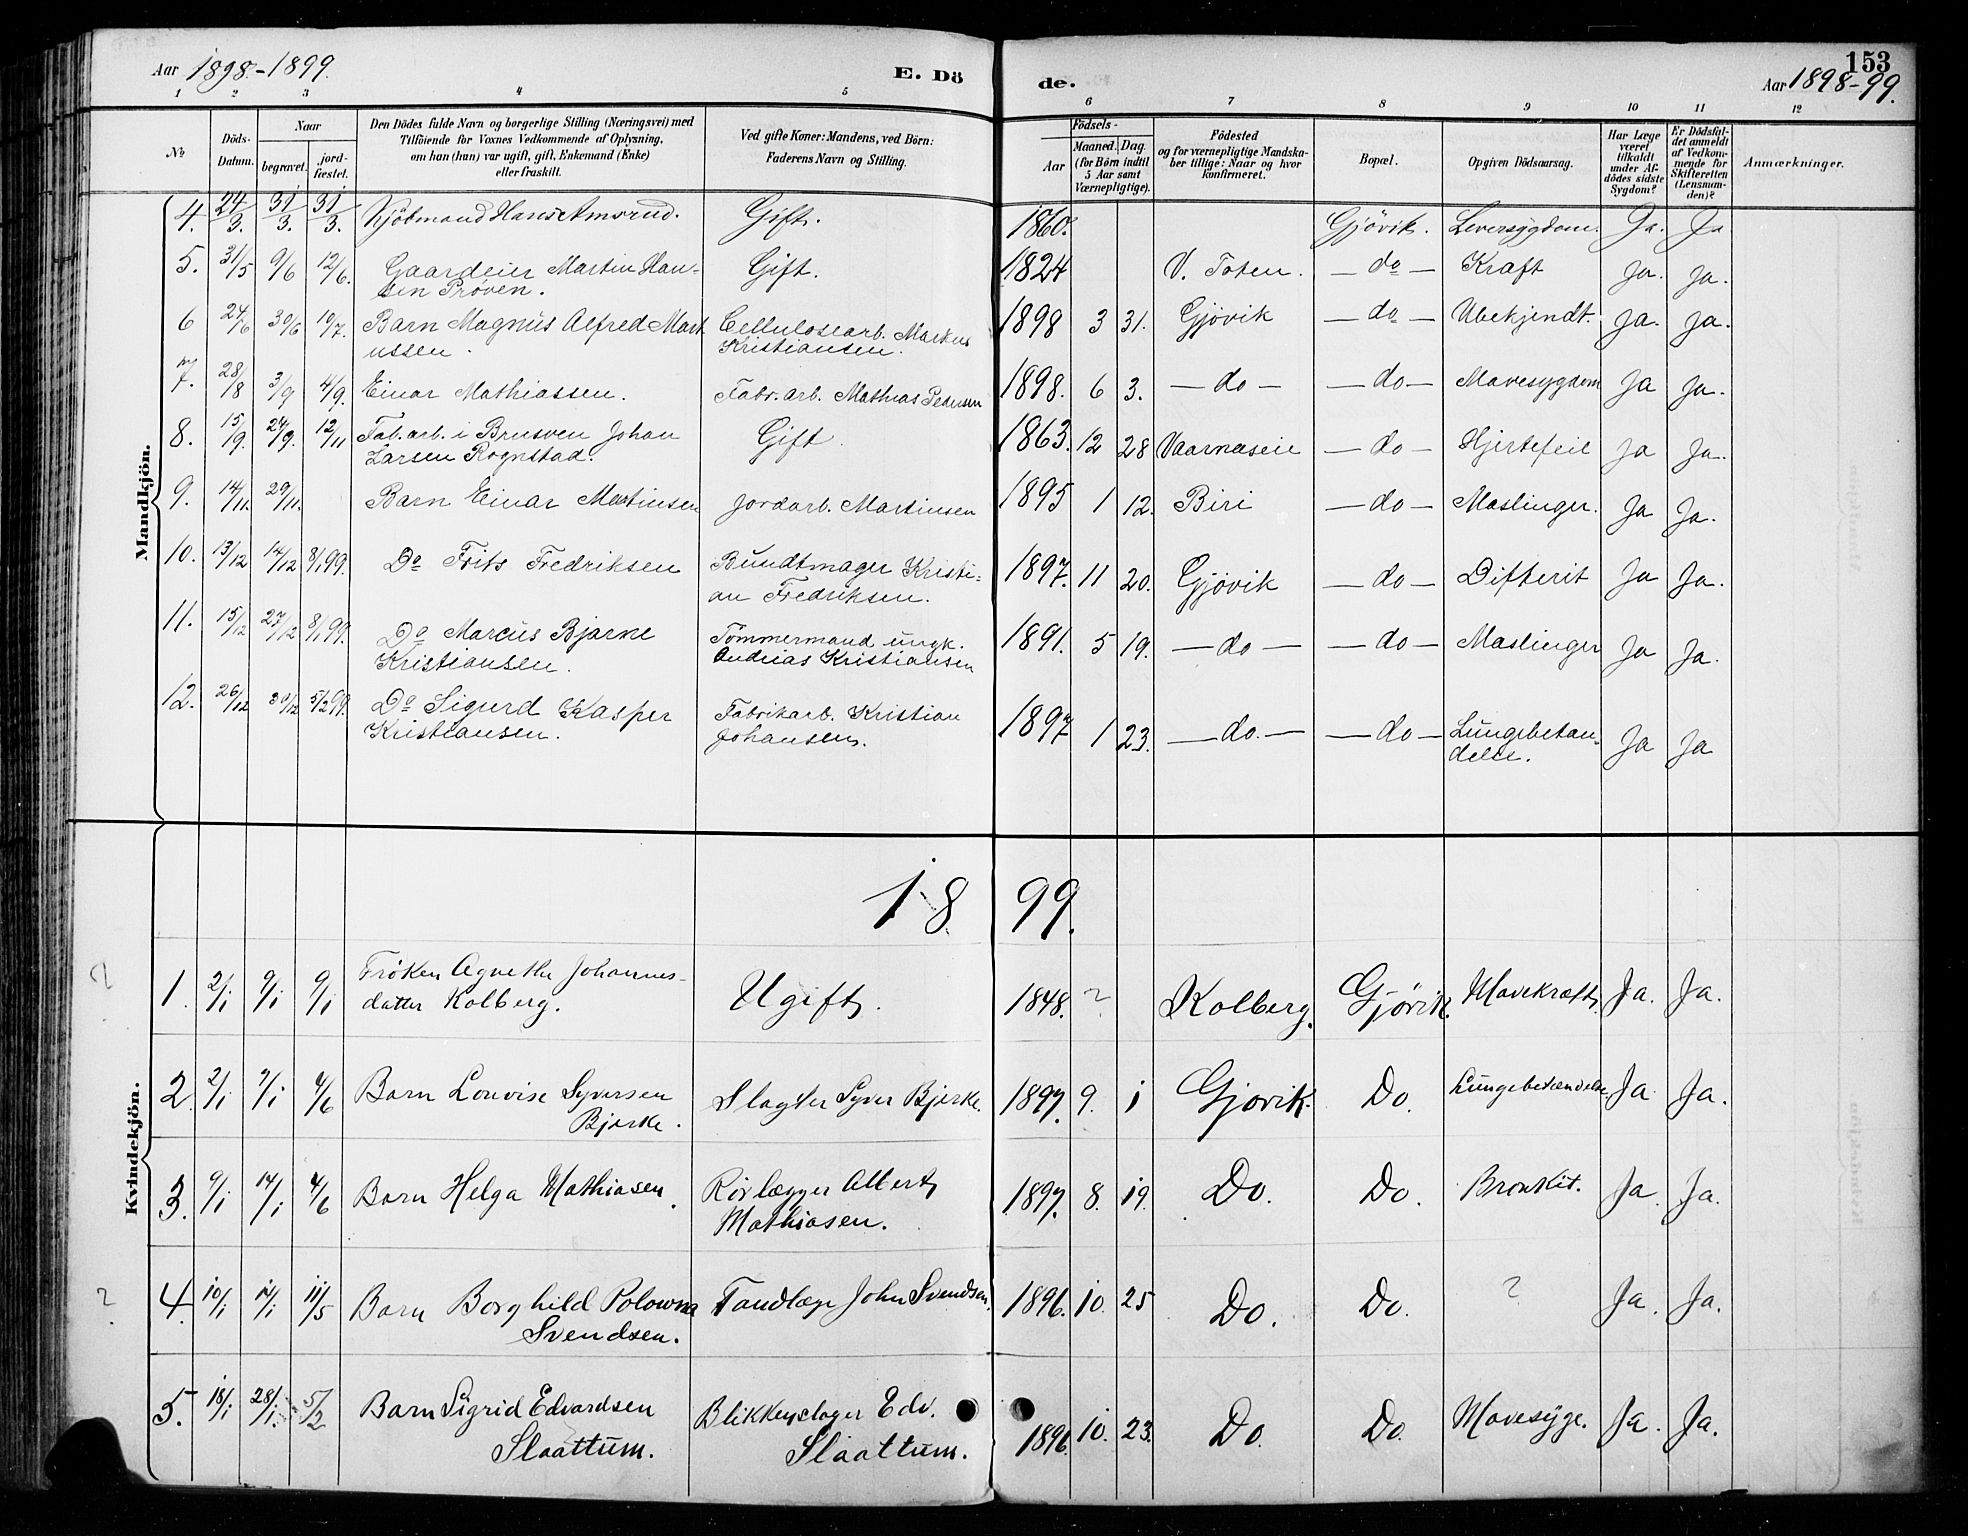 Aar 1898.-1899.
E. Dö
de.
153
Aar 1898-99.
1 2 3 4 5 6 7 8 9 10 11 12
№
Döds-Datum.
Naar
begravet.
jord-fæstet.
Den Dödes fulde Navn og borgerlige Stilling (Næringsvei) med
Tilföiende for Voxnes Vedkommende af Oplysning,
om han (hun) var ugift, gift, Enkemand (Enke)
eller fraskilt.
Ved gifte Koner: Mandens, ved Börn:
Faderens Navn og Stilling.
Födsels-
Aar
Maaned. Dag.
(for Börn indtil
5 Aar samt
Værnepligtige).
Födested
og for værnepligtige Mandska-
ber tillige: Naar og hvor
konfirmeret.
Bopæl.
Opgiven Dödsaarsag.
Har Læge
været
tilkaldt
under Af-
dödes sidste
Sygdom?
Er Dödsfal-
det anmeldt
af Vedkom-
mende for
Skifteretten
(Lensman-
den)?
Anmærkninger.
Mandkjön.
4. 24/3. 31/3. 31/3. Kjöbmand Hans Amsrud. Gift. 1860. Gjövik. Leversygdom. Ja. Ja
5. 31/5 9/6 12/6. Gaardeier Martin Han- Gift. 1824 V. Toten. - do - Kraft Ja. Ja.
sen Pröven.
6 24/6 30/6 10/7. Barn Magnus Alfred Mark Cellulosearb. Markus 1898 3 31. Gjövik - do - Ubekjendt. Ja. Ja.
ussen. Kristiansen.
7. 28/8 3/9 4/9. Einar Mathiassen. Fabr. arb. Mathias Pedersen 1898. 6 3. - do - - do - Mavesygdom Ja Ja.
8. 15/9. 24/9. 12/11 Fab. arb. i Brusven Johan Gift. 1863. 12 28 Vaarnaseie - do - Hjertefeil Ja Ja.
Larsen Rognstad.
9. 14/11. 29/11. Barn Einar Martinsen Jordarb. Martinsen 1895 1 12. Biri - do - Maslinger. Ja Ja.
10. 13/12 14/12 8/1 99. Do Frits Fredriksen Bundtmager Kristi- 1897. 11 20. Gjövik - do - Difterit Ja Ja.
an Fredriksen.
11. 15/12 27/12 8/1 99. Do Marcus Bjarne Tömmermand ungk. 1891. 5 19. - do - - do - Maslinger Ja Ja.
Kristiansen. Andreas Kristiansen
12. 26/12 30/12 5/2 99. Do Sigurd Kasper Fabrikarb. Kristian 1897 1 23. - do. - - do - Lungebetæn- Ja Ja
Kristiansen. Johansen. delse.
1899.
Kvindekjön.
?
1. 2/1 9/1 9/1 Fröken Agnethe Johannes- Ugift. 1848. ? Kolberg. Gjörik. Mavekræft. Ja. Ja.
datter Kolberg.
2. 2/1 7/1 4/6 Barn Louvise Syversen Slagter Syver Bjerke. 1897. 9. 1 Gjövik. Do. Lungebetændelse. Ja Ja.
Bjerke.
3. 9/1 14/1 4/6 Barn Helga Mathiasen. Rörlægger Albert 1897. 8. 19. Do. Do. Bronkit. Ja. Ja.
Mathiasen.
?
4. 10/1 14/1 11/5 Barn Borghild Polowna Tandlæge John Svendsen. 1896. 10. 25 Do. Do. ? Ja. Ja.
Svendsen.
5. 18/1 28/1. 5/2 Barn Sigrid Edvardsen Blikkenslager Edv. 1896. 10. 23. Do. Do. Mavesyge. Ja. Ja.
Slaattum. Slaattum.